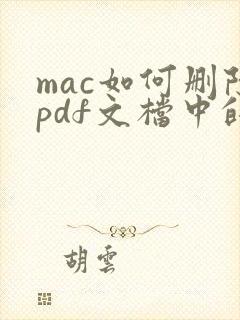 mac如何删
pdf文檔中
胡雲